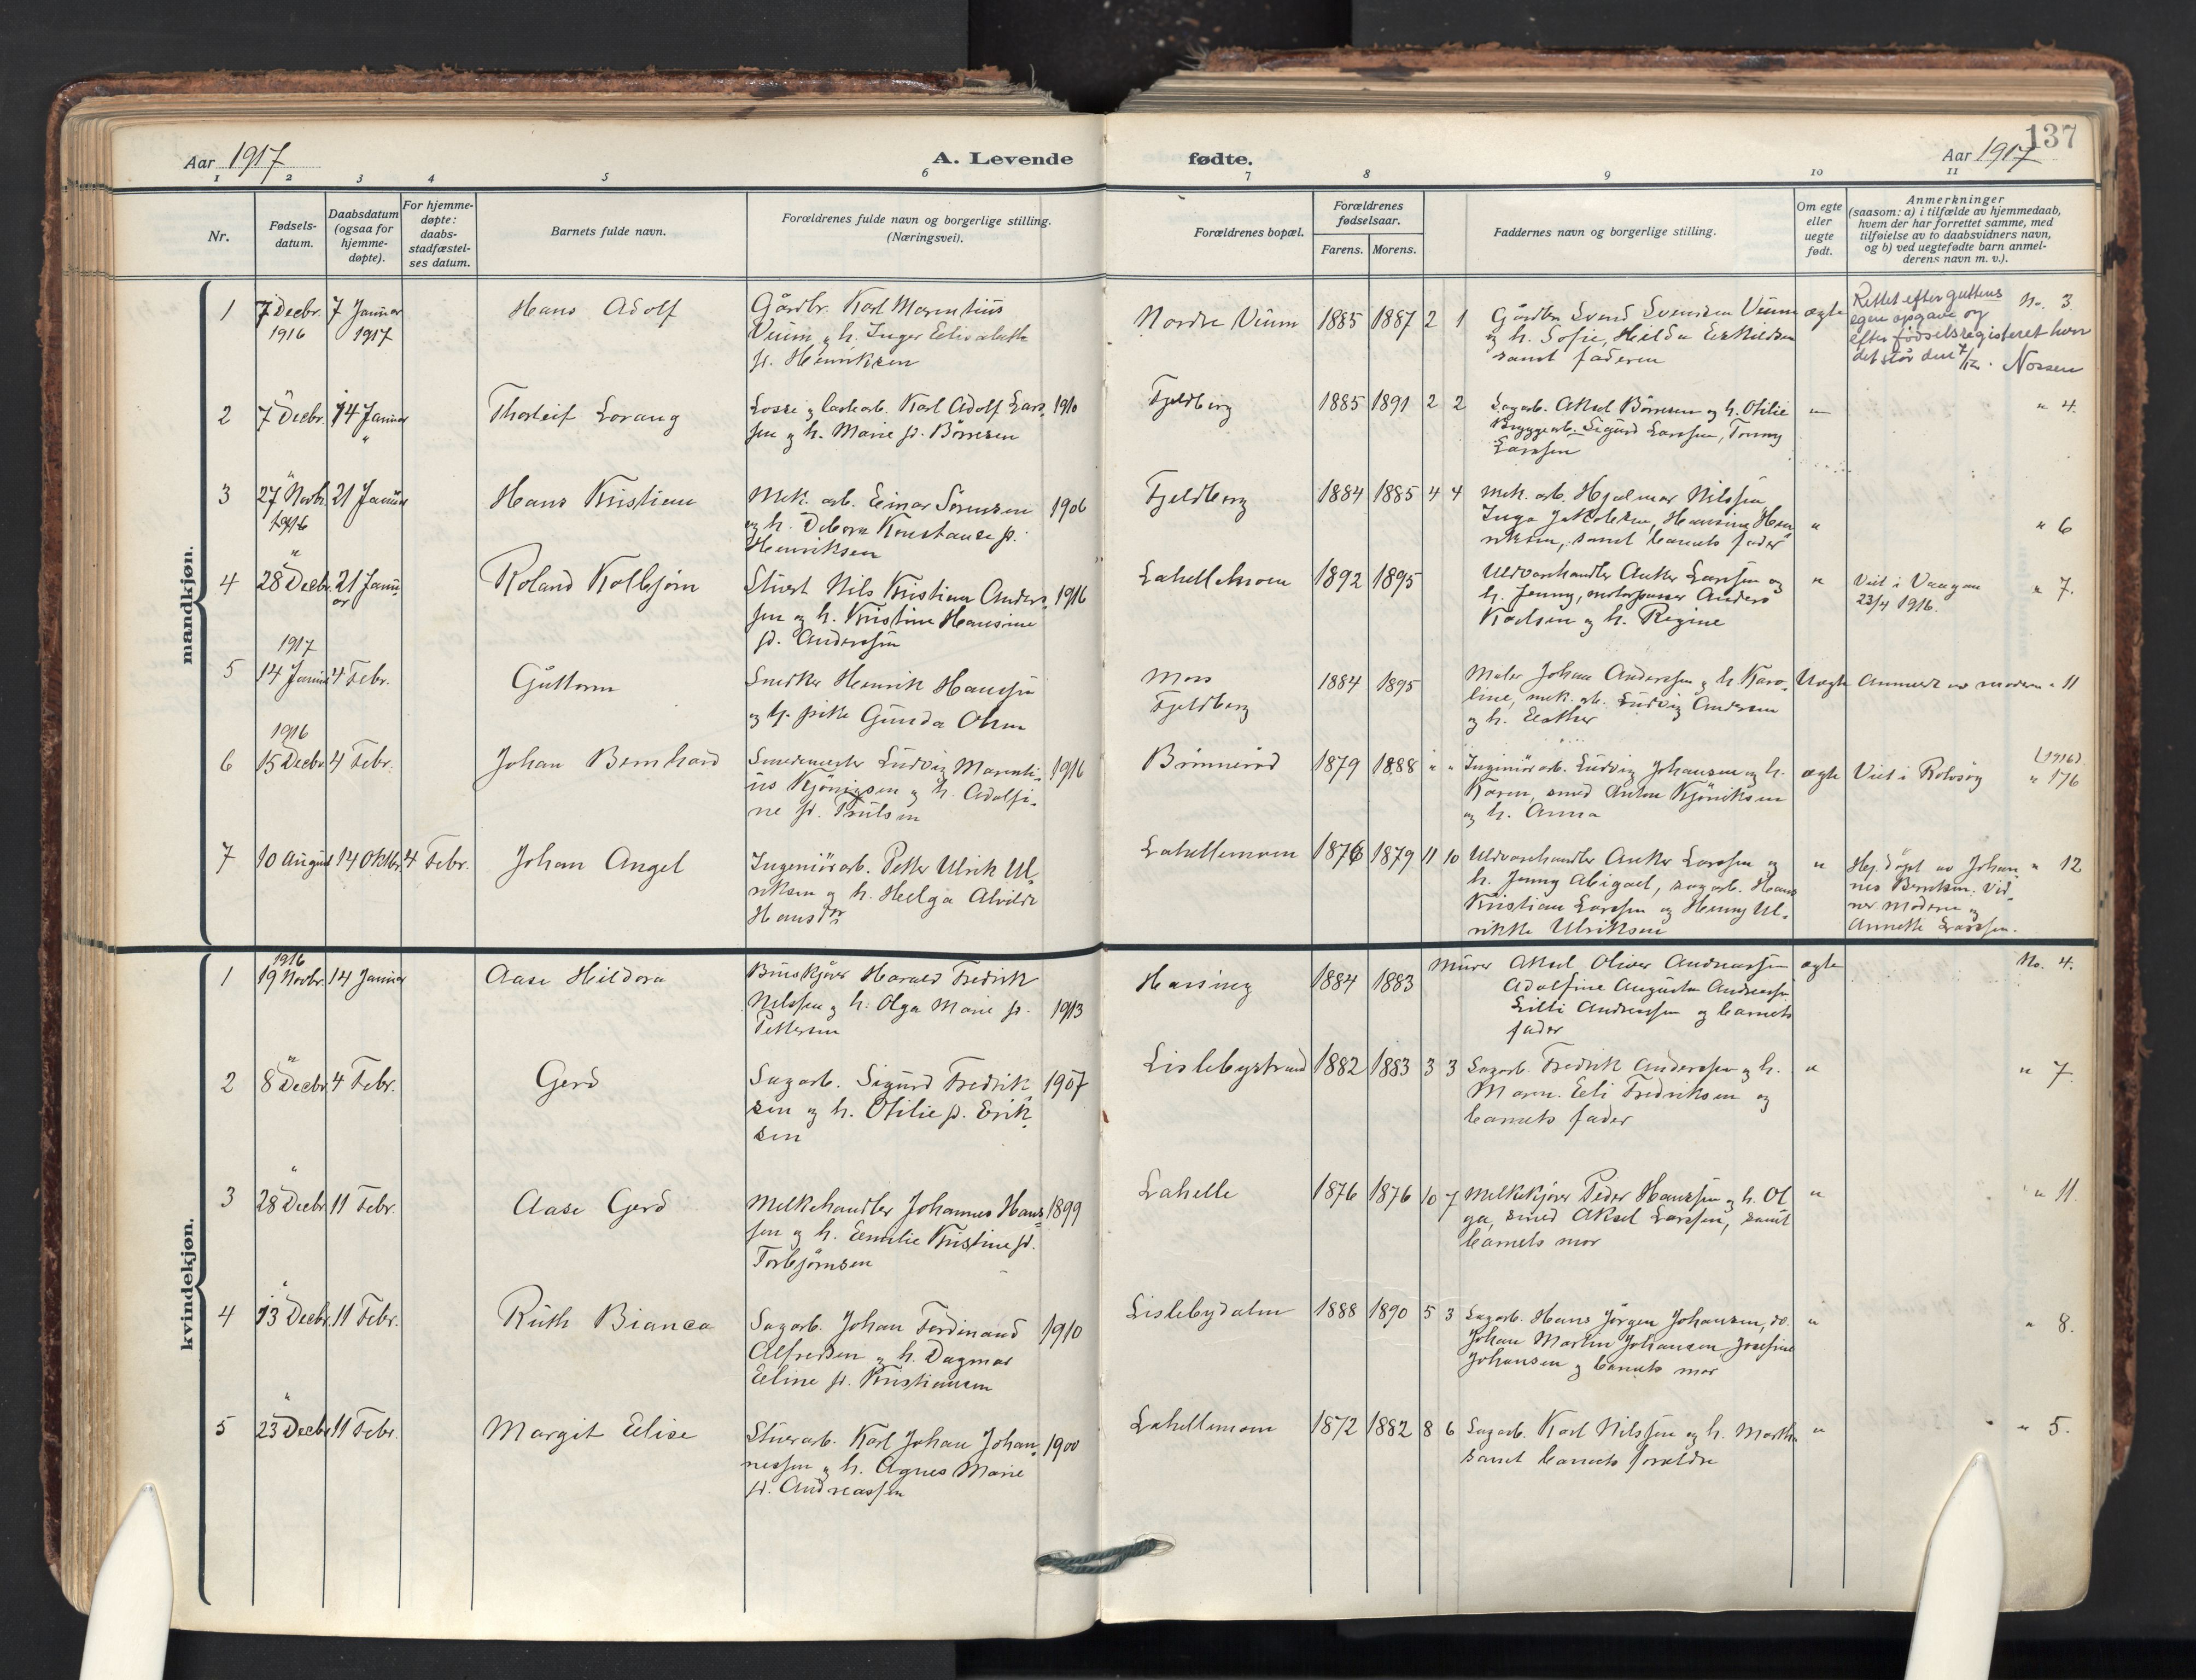 137
Aar 1917
A. Levende
fødte.
Aar 1917
1 2 3 4 5 6 7 8 9 10 11
Nr.
Fødsels-
datum.
Daabsdatum
(ogsaa for
hjemme-
døpte).
For hjemme-
døpte:
daabs-
stadfæstel-
ses datum.
Barnets fulde navn.
Forældrenes fulde navn og borgerlige stilling.
(Næringsvei).
Forældrenes bopæl.
Forældrenes
fødselsaar.
Farens. Morens.
Faddernes navn og borgerlige stilling.
Om egte
eller
uegte
født.
Anmerkninger
(saasom: a) i tilfælde av hjemmedaab,
hvem der har forrettet samme, med
tilføielse av to daabsvidners navn,
og b) ved uegtefødte barn anmel-
derens navn m. v.).
mandkjøn.
1 7 Decbr. 7 Januar Hans Adolf
1916 1917
Gårdbr. Karl Marentius
Veium, g. h. Inger Elisabeth
f. Henriksen
Nordre Veium 1885 1887 2 1
Gårdbr. Svend Svendsen Veium
og h. Sofie, Hilda Eskildsen
samt faderen
ægte
Rettet efter guttens No. 3
egen opgave og
efter fødselsregisteret hvor
det står den 7/12. Nossen
2 7 Decbr. 14 Januar Thorleif Lorang
Losse g lastearb. Karl Adolf Lars- 1910
sen g h. Marie f. Börresen
Fjeldberg 1885 1891 2 2
Sagarb. Aksel Börresen og h. Otilie
Bryggearb. Sigurd Larssen, Tonny
Larssen
" 4.
3 27 Novb. 21 Januar Hans Kristian
1916
Mek. arb. Einar Sörensen 1906
og h. Debora Konstanse f.
Henriksen
Fjeldberg 1884 1885 4 4
Mek. arb. Hjalmar Nilssen
Inga Jakobsen, Hansine Hen-
riksen, samt barnets fader
" " 6
4 28 Decbr. 21 Janu-
ar
Roland Kolbjörn
Stuert Nils Kristian Anders- 1916
sen og h. Kristine Hansine
f. Anderssen
Lahellemoen 1892 1895
Uldvarehandler Anker Larssen og
h. Jenny, motorpasser Anders
Karlsen g h. Regine
" Viet i Vaagan " 7.
23/4 1916.
1917
5 14 Januar 4 Febr. Guttorm
Snedker Henrik Hanssen
og ug. pike Gunda Olsen
Moss
Fjeldberg
1884 1895
Maler Johan Anderssen g h. Karo-
line, mek. arb. Ludvig Andersen
og h. Esther
Uægte Anmeldt av moderen " 11
1916
6 15 Decbr. 4 Febr. Johan Bernhard
Smedmester Ludvig Marenti- 1916
us Kjönigsen g h. Adolfi-
ne f. Trulsen
Brönneröd 1879 1888 " "
Ingeniörarb. Ludvig Johansen og h.
Karen, smed Anton Kjöniksen
og h. Anna
ægte Viet i Rolvsöy (1916).
" 176
7 10 August 14 Oktbr. 4 Febr. Johan Angel
Ingeniörarb. Petter Ulrik Ul-
riksen g h. Helga Alvilde
Hansdtr
Lahellemoen 1876 1879 11 10
Uldvarehandler Anker Larssen og
h. Jenny Abigael, sagarb. Hans
Kristian Larssen og Henny Ul-
rikke Ulriksen
" Hej. döpt av Johan- " 12
nes Berntsen. Vid-
ner. Moderen g
Annette Larssen.
kvindekjøn.
1916
1 19 Novbr. 14 Januar Aase Hildora
Harald Fredrik
Nilssen g h. Olga Marie f. 1913
Pettersen
Haising 1884 1883
Murer Aksel Oliver Andreassen
Adolfine Augusta Andreassen
Lilli Andreassen og barnets
fader
ægte No. 4.
2 8 Decbr. 4 Febr. Gerd
Sagarb. Sigurd Fredrik- 1907
sen og h. Otilie f. Erik-
sen
Lislebystrand 1882 1883 3 3
Sagarb. Fredrik Anderssen g h.
Maren. Elli Fredriksen og
barnets fader
" " 7.
3 28 Decbr. 11 Febr. Aase Gerd
Melkehandler Johannes Hans- 1899
sen og h. Emilie Kristine f.
Torbjörnsen
Lahelle 1876 1876 10 7
Melkekjörer Peder Hanssen g h. Ol-
ga, smed Aksel Larssen, samt
barnets mor
" " 11.
4 13 Decbr. 11 Febr. Ruth Bianca
Sagarb. Johan Ferdinand 1910
Alfredsen g h. Dagmar
Eline f. Kristiansen
Lislebydalen 1888 1890 5 3
Sagarb. Hans Jörgen Johansen, do.
Johan Martin Johansen Josefine
Johansen g barnets mor
" " 8.
5 23 Decbr. 11 Febr. Margit Elise
Stuerarb. Karl Johan Johan- 1900
nessen g h. Agnes Marie
f. Andreassen
Lahellemoen 1872 1882 8 6
Sagarb. Karl Nilssen og h. Martha
samt barnets foreldre
" " 5.